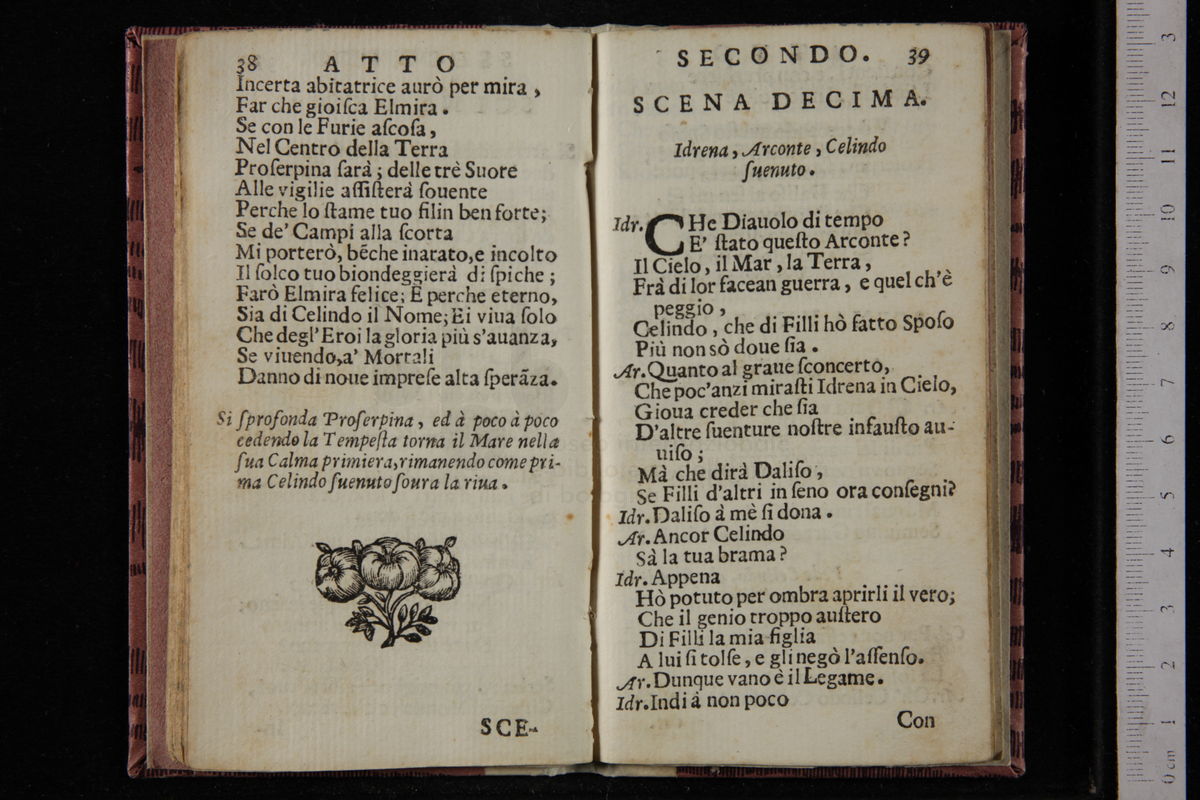 38 ATTO
Incerta abitatrice aurò per mira ,
Far che gioiſca Elmira .
Se con le Furie aſcoſa ,
Nel Centro della Terra
Proſerpina ſarà ; delle trè Suore
Alle vigilie aſſiſterà ſouente
Perche lo ſtame tuo filin ben forte;
Se de' Campi alla ſcorta
Mi porterò, bẽche inarato,e incolto
Il ſolco tuo biondeggierà di ſpiche ;
Farò Elmira felice; E perche eterno,
Sia di Celindo il Nome; Ei viua ſolo
Che degl'Eroi la gloria più s'auanza,
Se viuendo,a' Mortali
Danno di noue impreſe alta ſperãza.
Si ſprofonda Proſerpina , ed à poco à poco
cedendo la Tempeſta torna il Mare nella
ſua Calma primiera,rimanendo come pri-
ma Celindo ſuenuto ſoura la riua .
SCE-
SECONDO. 39
SCENA DECIMA.
Idrena , Arconte , Celindo
ſuenuto .
Idr. CHe Diauolo di tempo
E' ſtato queſto Arconte ?
Il Cielo , il Mar , la Terra ,
Frà di lor facean guerra , e quel ch'è
peggio ,
Celindo , che di Filli hò fatto Spoſo
Più non sò doue ſia .
Ar. Quanto al graue ſconcerto,
Che poc'anzi miraſti Idrena in Cielo,
Gioua creder che ſia
D'altre ſuenture noſtre infauſto au-
uiſo ;
Mà che dirà Daliſo ,
Se Filli d'altri in ſeno ora conſegni?
Idr. Daliſo à mè ſi dona .
Ar. Ancor Celindo
Sà la tua brama ?
Idr. Appena
Hò potuto per ombra aprirli il vero;
Che il genio troppo auſtero
Di Filli la mia figlia
A lui ſi tolſe , e gli negò l'aſſenſo.
Ar. Dunque vano è il Legame .
Idr. Indi à non poco
Con
0 cm 1 2 3 4 5 6 7 8 9 10 11 12
3